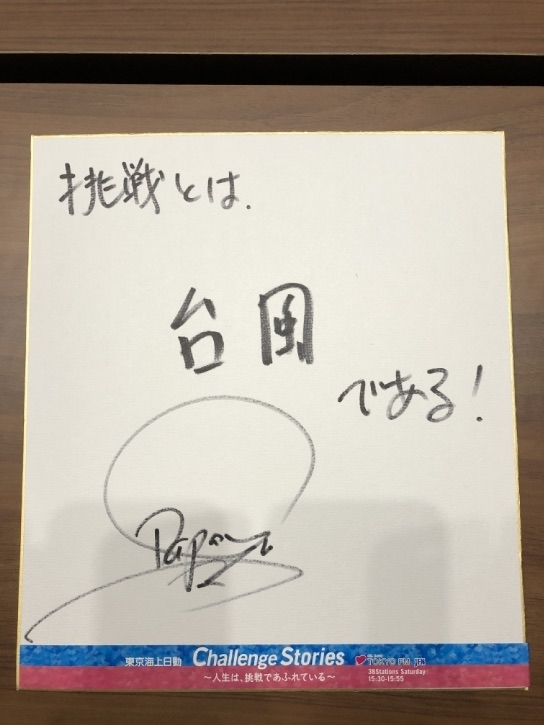 挑戦とは、
台風
である!
東京海上日動 Challenge Stories
～人生は、挑戦であふれている～
TOKYO FM JFN
38Stations Saturday
15:30-15:55